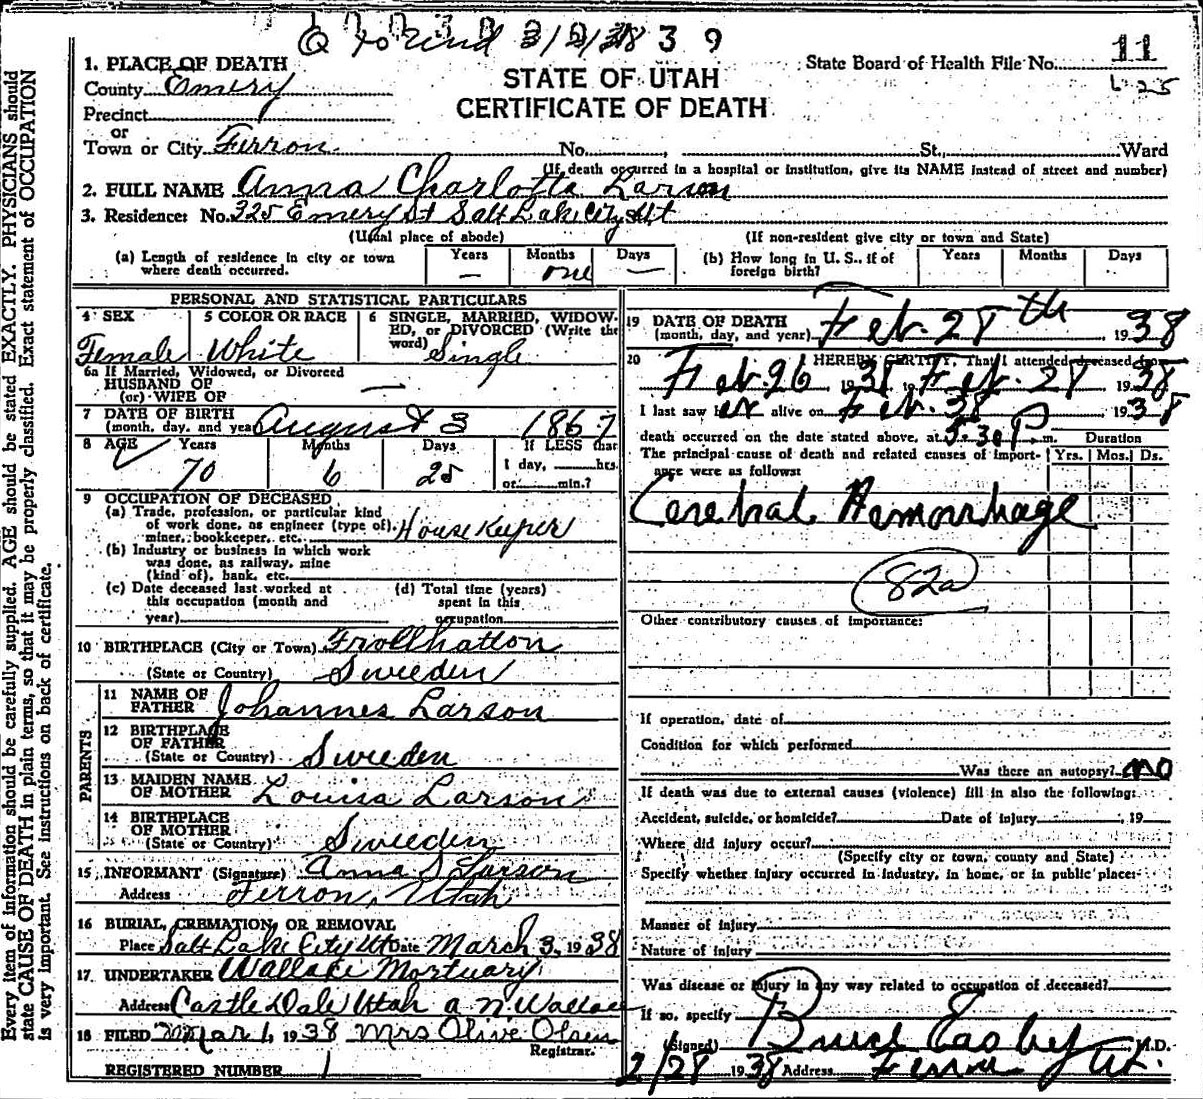 3/2/38 39
State Board of Health File No. 11
1. PLACE OF DEATH
County Emery
STATE OF UTAH
CERTIFICATE OF DEATH
Precinct
or
Town or City Ferron No. , St., Ward
(If death occurred in a hospital or institution, give its NAME instead of street and number)
2. FULL NAME Anna Charlotta Larson
3. Residence: No. 325 Emery St Salt Lake City Ut
(Usual place of abode) (If non-resident give city or town and State)
(a) Length of residence in city or town where death occurred. Years — Months one Days —
(b) How long in U. S., if of foreign birth? Years Months Days
PERSONAL AND STATISTICAL PARTICULARS
4 SEX Female
5 COLOR OR RACE White
6 SINGLE, MARRIED, WIDOWED, or DIVORCED (Write the word) Single
6a If Married, Widowed, or Divorced
HUSBAND OF
(or) WIFE OF —
7 DATE OF BIRTH
(month, day, and year) August 3 1867
8 AGE Years 70 Months 6 Days 25 If LESS than 1 day, hrs. or min.?
9 OCCUPATION OF DECEASED
(a) Trade, profession, or particular kind of work done, as engineer (type of), miner, bookkeeper, etc. House Keeper
(b) Industry or business in which work was done, as railway, mine (kind of), bank, etc.
(c) Date deceased last worked at this occupation (month and year)
(d) Total time (years) spent in this occupation
10 BIRTHPLACE (City or Town) Trollhatton
(State or Country) Sweeden
PARENTS
11 NAME OF FATHER Johannes Larson
12 BIRTHPLACE OF FATHER
(State or Country) Sweeden
13 MAIDEN NAME OF MOTHER Louisa Larson
14 BIRTHPLACE OF MOTHER
(State or Country) Sweeden
15 INFORMANT (Signature) Anna S Larson
Address Ferron, Utah
16 BURIAL, CREMATION, OR REMOVAL
Place Salt Lake City Ut Date March 3, 1938
17 UNDERTAKER Wallace Mortuary
Address Castle Dale Utah A N Wallace
18 FILED Mar 1, 1938 Mrs Olive Olsen
Registrar.
REGISTERED NUMBER 1
19 DATE OF DEATH
(month, day, and year) Feb. 28th 1938
20 I HEREBY CERTIFY, That I attended deceased from
Feb. 26 1938 to Feb. 28 1938
I last saw her alive on Feb. 38 1938
death occurred on the date stated above, at 5:30 P m. Duration
The principal cause of death and related causes of importance were as follows: Yrs. Mos. Ds.
Cerebral Hemorrhage
82a
Other contributory causes of importance:
If operation, date of
Condition for which performed
Was there an autopsy? no
If death was due to external causes (violence) fill in also the following:
Accident, suicide, or homicide? Date of injury , 19
Where did injury occur?
(Specify city or town, county and State)
Specify whether injury occurred in industry, in home, or in public place:
Manner of injury
Nature of injury
Was disease or injury in any way related to occupation of deceased?
If so, specify
(Signed) Bruce Easley, M.D.
2/28 1938 Address Ferron Ut.
Every item of information should be carefully supplied. AGE should be stated EXACTLY. PHYSICIANS should
state CAUSE OF DEATH in plain terms, so that it may be properly classified. Exact statement of OCCUPATION
is very important. See instructions on back of certificate.